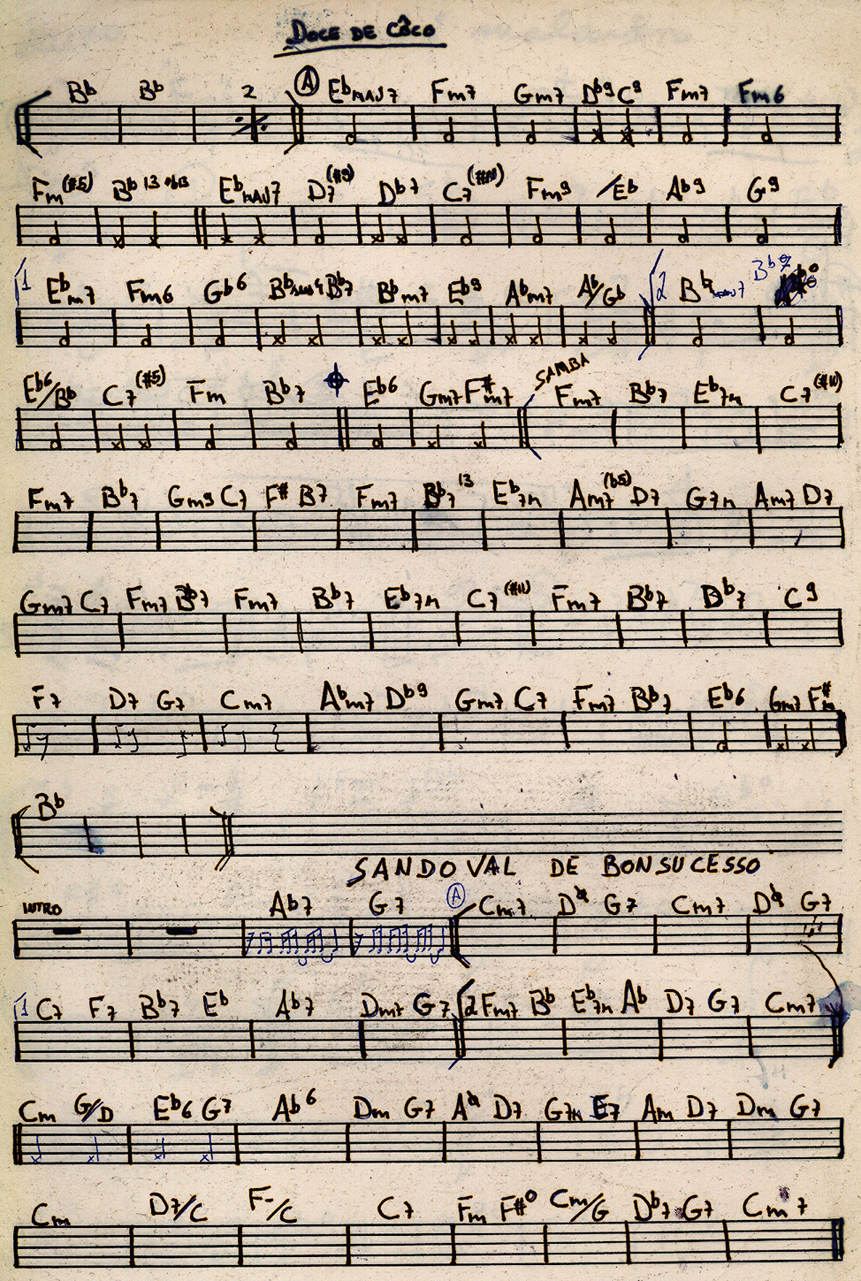 DOCE DE CÔCO
Bb Bb 2 A EbMAJ7 Fm7 Gm7 Db9 C9 Fm7 Fm6
Fm(#5) Bb13 b13 EbMAJ7 D7(#9) Db7 C7 Fm9 /Eb Ab9 G9
1 Ebm7 Fm6 Gb6 Bbsus4 Bb7 Bbm7 Eb9 Abm7 Ab/Gb 2
Eb6/Bb C7(#5) Fm Bb7 Eb6 Gm7 F#m7 SAMBA Fm7 Bb7 Eb7M C7(#11)
Fm7 Bb7 Gm9 C7 F# B7 Fm7 Bb7 13 Eb7M Am7(b5) D7 G7M Am7 D7
Gm7 C7 Fm7 Bb7 Fm7 Bb7 Eb7M C7(#11) Fm7 Bb7 Db7 C9
F7 D7 G7 Cm7 Abm7 Db9 Gm7 C7 Fm7 Bb7 Eb6 Gm7 F#m
Bb
SANDOVAL DE BONSUCESSO
INTRO Ab7 G7 A Cm7 G7 Cm7 G7
1 C7 F7 Bb7 Eb Ab7 Dm7 G7 2 Fm7 Bb Eb7M Ab D7 G7 Cm7
Cm G/D Eb6 G7 Ab6 Dm G7 D7 G7M E7 Am D7 Dm G7
Cm D7/C F-/C C7 Fm F#o Cm/G Db7 G7 Cm7